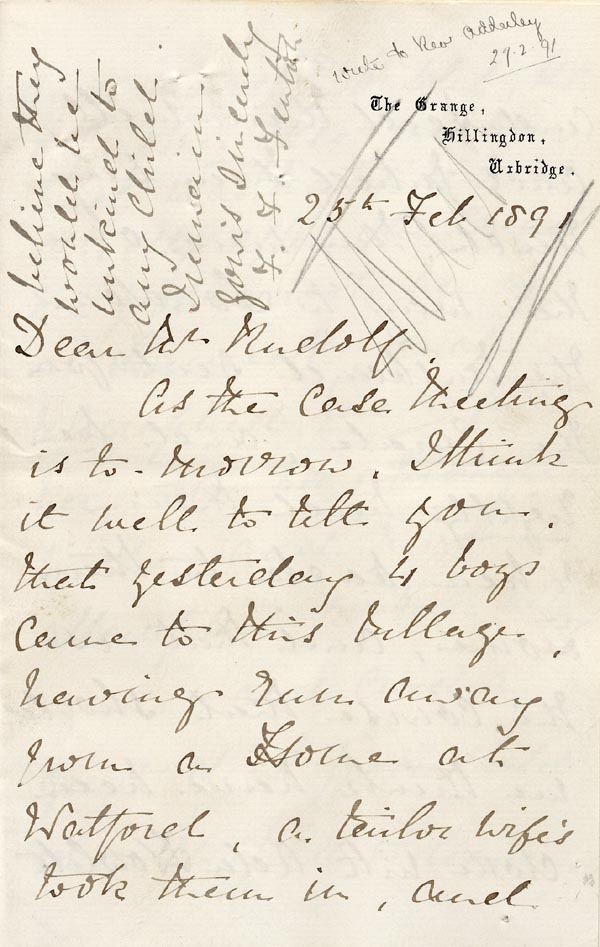 write to Rev Adderley
27.2.91
The Grange,
Hillingdon,
Uxbridge.
25th Feb 1891
Dear Mr Rudolf,
As the Case Meeting
is to-morrow, I think
it well to tell you,
that yesterday 4 boys
came to this village,
having run away
from a Home at
Watford, a tailor wife's
took them in, and
believe they
would be
unkind to
any Child.
I remain
Yours Sincerely